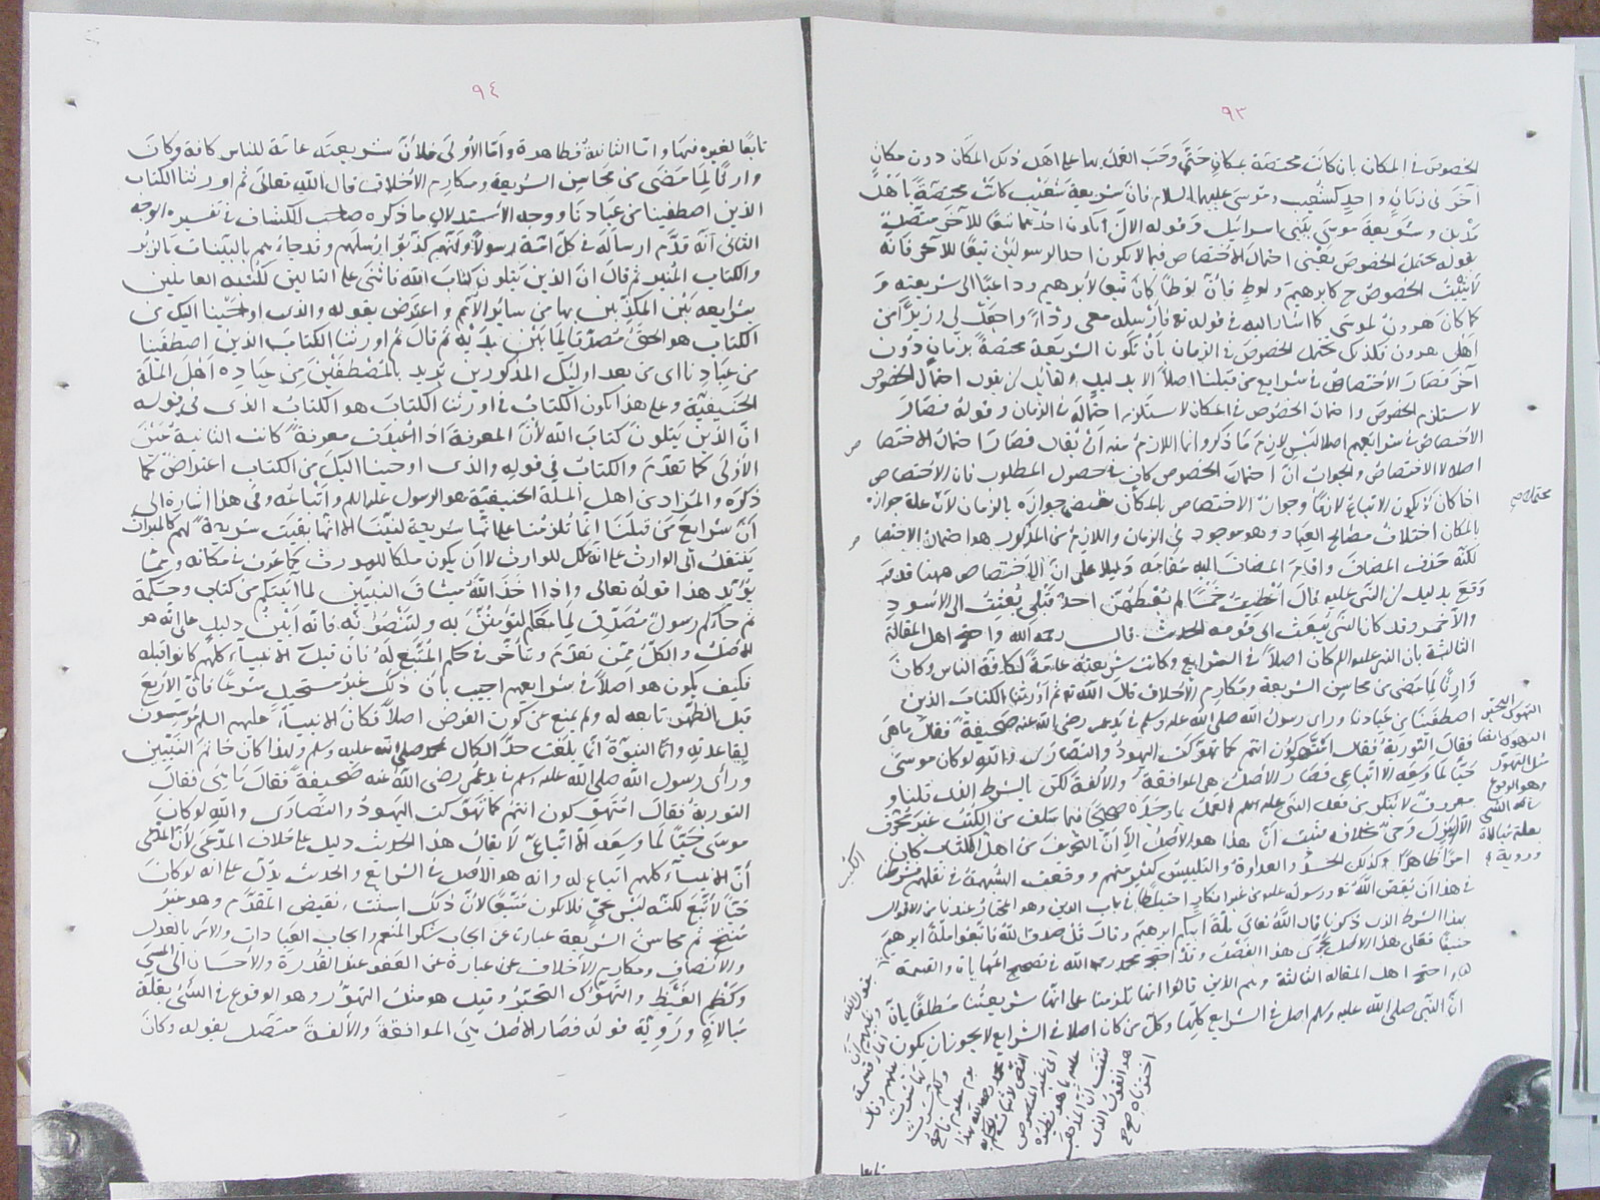 ٩٣
الخصوص في المكان بان كانت مختصة بمكان حتى وجب العمل بها على اهل ذلك المكان دون مكان
آخر في زمان واحد كشعيب وموسى عليهما السلام فان شريعة شعيب كانت مختصة باهل
مدين وشريعة موسى ببني اسرائيل وقوله الا ان يكونا احدهما تبعا للآخر متصل
بقوله يحتمل الخصوص يعني احتمال الاختصاص فيما لا يكون احد الرسولين تبعا للآخر فانه
لا يثبت الخصوص ح كابرهيم ولوط فان لوطا كان تبعا لأبرهيم وداعيا الى شريعته
كما كان هرون لموسى كما اشار اليه في قوله تع فارسله معي ردءا واجعل لي وزيرا من
اهلي هرون فكذلك يحتمل الخصوص في الزمان بان تكون الشريعة مختصة بزمان دون
آخر فصار الاختصاص في شرايع من قبلنا اصلا الا بدليل ولقائل ان يقول احتمال الخصوص
لا يستلزم الخصوص واحتمال الخصوص في المكان لا يستلزم احتماله في الزمان وقوله فصار
الاختصاص في شرائعهم اصلا ليس لازم ما ذكروا انما اللازم منه ان يقال فصار احتمال الاختصا ص
اصلا لا الاختصاص والجواب ان احتمال الخصوص كاف في حصول المطلوب فان الاختصاص
اذا كان لا يكون الاتباع لازما وجواز الاختصاص بالمكان جوازه بالزمان لان علة جوازه
بالمكان اختلاف مصالح العباد وهو موجود في الزمان واللازم من المذكور هو احتمال الاختصا ص
لكنه حذف المضاف واقام المضاف اليه مقامه دليلا على ان الاختصاص ههنا قد
وقع بدليل ان النبي عليه قال اعطيت خمسا لم يعطهن احد قبلي بعثت الى الاسود
والاحمر وقد كان النبي يبعث الى قومه الحديث قال رحمه الله واحتج اهل المقالة
الثالثة بان النبي عليه السلم كان اصلا في الشرايع وكانت شريعته عامة لكافة الناس وكان
وارثا لما مضى من محاسن الشريعة ومكارم الاخلاق قال الله تع ثم اورثنا الكتاب الذين
اصطفينا من عبادنا ورأى رسول الله صلى الله عليه وسلم في يد عمر رضي الله عنه صحيفة فقال ما هي
فقال التورية فقال امتهوكون انتم كما تهوكت اليهود والنصارى والله لو كان موسى
حيا لما وسعه الا اتباعي فصار الاصل هي الموافقة والالفة لكن بالشرط الذي قلنا و
معروف لا ينكر من فعل النبي عليه السلم العمل بما وجده صحيحا فيما سلف من الكتب غير محرف
الا ان ينزل وحي بخلافه فثبت ان هذا هو الأصل الا ان التحريف من اهل الكتاب كان
امرا ظاهرا وكذلك الحسد والعداوة والتلبيس كثير منهم ووقعت الشبهة في نقلهم فشرطنا
في هذا ان يقص الله تع ورسوله عليه من غير انكار احتياطا في باب الدين وهو المختار عندنا من الاقوال
بهذا الشرط الذي ذكرنا قال الله تعالى ملة ابيكم ابرهيم وقال قل صدق الله فاتبعوا ملة ابرهيم
حنيفا فعلى هذا الاصل يجرى هذا الفصل وقد احتج محمد رحمه الله في تصحيح المهاياة والقسمة
واحتج اهل المقالة الثالثة وهم الذين قالوا انها تلزمنا على انها شريعتنا مطلقا بان
ان النبي صلى الله عليه وسلم اصل في الشرايع كلها وكل من كان اصلا في الشرايع لا يجوز ان يكون
محتملا صح
التهوك التحير
التهوك ايضا
مثل التهور
وهو الوقوع
في الشي
بقلة مبالاة
وروية
الكتب
بقول الله
ونبئهم ان
الماء قسمة
بينهم وقال
لها شرب
ولكم شرب
يوم معلوم فاحتج
محمد رحمه الله بهذا
النص لاثبات الحكم به
في غير المنصوص
عليه بما هو نظيره
فثبت ان المذهب
هو القول الذي
اخترناه صح
تابعا
٩٤
تابعا لغيره فيها واما الثانية فظاهرة واما الأولى فلأن شريعته عامة للناس كافة وكان
وارثا لما مضى من محاسن الشريعة ومكارم الأخلاق قال الله تعالى ثم اورثنا الكتاب
الذين اصطفينا من عبادنا ووجه الاستدلال ما ذكره صاحب الكشاف في تفسيره الوجه
الثاني انه قدم ارساله في كل امة رسولا وانهم كذبوا رسلهم وقد جاءوهم بالبينات بالزبر
والكتاب المنير ثم قال ان الذين يتلون كتاب الله فاثنى على التالين لكتبه العاملين
بشرايعه بين المكذبين بها من سائر الأمم واعترض بقوله والذي اوحينا اليك من
الكتاب هو الحق مصدقا لما بين يديه ثم قال ثم اورثنا الكتاب الذين اصطفينا
من عبادنا اي من بعد اوليك المذكورين يريد بالمصطفين من عباده اهل الملة
الحنيفية وعلى هذا يكون الكتاب في اورثنا الكتاب هو الكتاب الذي في قوله
ان الذين يتلون كتاب الله لأن المعرفة اذا اعيدت معرفة كانت الثانية عين
الأولى كما تقدم والكتاب في قوله والذي اوحينا اليك من الكتاب اعتراض كما
ذكره والمراد من اهل الملة الحنيفية هو الرسول عليه السلم واتباعه وفي هذا اشارة الى
ان شرايع من قبلنا انما تلزمنا على انها شريعة لنبينا لا انها بقيت شريعة لهم كالميراث
ينتقل الى الوارث على انه ملك للوارث لا ان يكون ملكا للمورث كما عرف في مكانه ومما
يؤيد هذا قوله تعالى واذا اخذ الله ميثاق النبيين لما آتيتكم من كتاب وحكمة
ثم جاءكم رسول مصدق لما معكم لتؤمنن به ولتنصرنه فانه ابين دليل على انه هو
الاصل والكل ممن تقدم وتأخر في حكم المتبع له فان قيل الانبياء كلهم كانوا قبله
فكيف يكون هو اصلا في شرايعهم اجيب بان ذلك غير مستحيل شرعا فان الاربع
قبل الظهر تابعة له ولم يمنع من كون الفرض اصلا فكان الانبياء عليهم السلم مؤسسون
لقاعدته وانما النبوة انما بلغت حد الكمال بمحمد صلى الله عليه وسلم ولهذا كان خاتم النبيين
ورأى رسول الله صلى الله عليه وسلم بيد عمر رضي الله عنه صحيفة فقال ما هي فقال
التورية فقال امتهوكون انتم كما تهوكت اليهود والنصارى والله لو كان
موسى حيا لما وسعه الا اتباعي لا يقال هذا الحديث دليل على خلاف المدعى لأن المدعى
ان الانبياء كلهم اتباع له وانه هو الأصل في الشرايع والحديث يدل على انه لو كان
حيا لاتبع لكنه ليس بحي فلا يكون متبعا لان ذلك استثناء نقيض المقدم وهو غير
منتج ثم محاسن الشريعة عبارة عن ايجاب شكر المنعم وايجاب العبادات والامر بالعدل
والانصاف ومكارم الأخلاق عن عبارة عن العفو عند القدرة والاحسان الى المسئ
وكظم الغيظ والتهوك التحير وقيل هو مثل التهور وهو الوقوع في الشئ بقلة
مبالاة وروية قوله فصار الأصل هي الموافقة والألفة متصل بقوله وكان